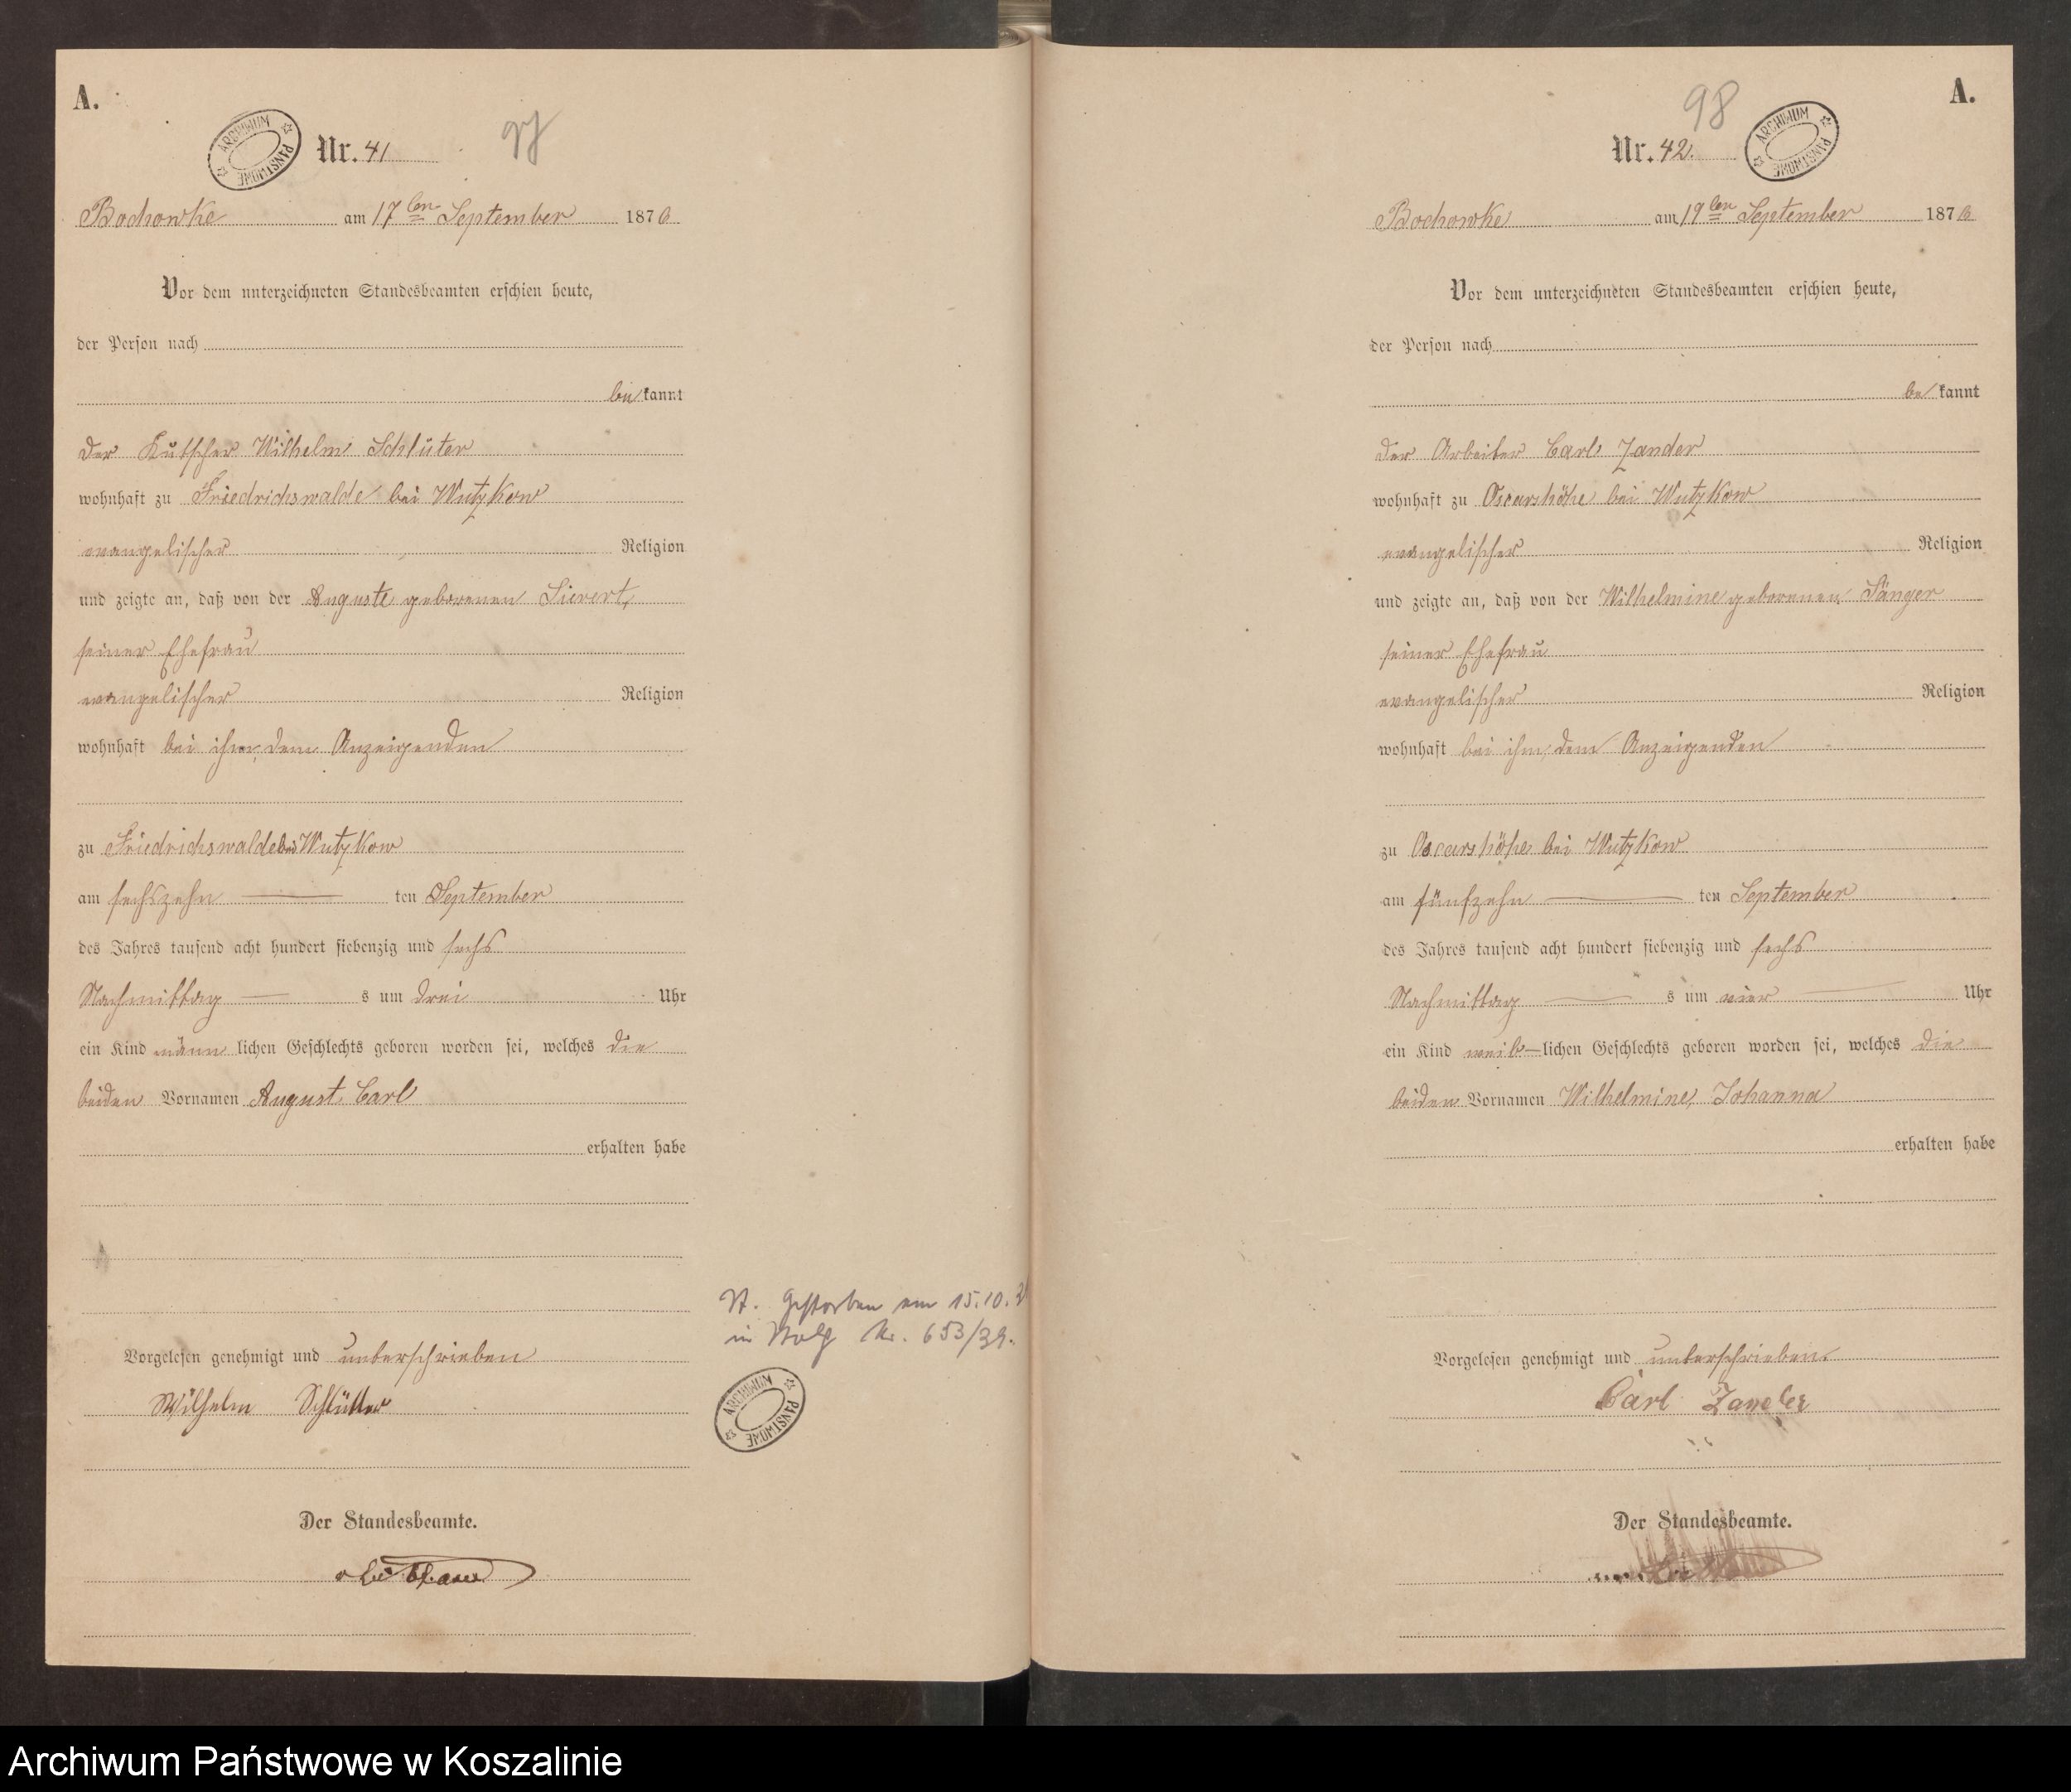 A.
ARCHIWUM PAŃSTWOWE
Nr. 41
97
Bochowke am 17ten September 1876
Vor dem unterzeichneten Standesbeamten erschien heute,
der Person nach
be kannt
der Kutscher Wilhelm Schlüter
wohnhaft zu Friedrichswalde bei Wutzkow
evangelischer Religion
und zeigte an, daß von der Auguste geborenen Sievert,
seiner Ehefrau
evangelischer Religion
wohnhaft bei ihm, dem Anzeigenden
zu Friedrichswalde bei Wutzkow
am sechszehn ten September
des Jahres tausend acht hundert siebenzig und sechs
Nachmittag s um drei Uhr
ein Kind männ lichen Geschlechts geboren worden sei, welches die
beiden Vornamen August, Carl
erhalten habe
Vorgelesen genehmigt und unterschrieben
Wilhelm Schlütter
Der Standesbeamte.
St. Gestorben am 15.10.
in Stolp Nr. 653/39.
ARCHIWUM PAŃSTWOWE
A.
98
Nr. 42.
ARCHIWUM PAŃSTWOWE
Bochowke am 19ten September 1876
Vor dem unterzeichneten Standesbeamten erschien heute,
der Person nach
be kannt
der Arbeiter Carl Zander
wohnhaft zu Oscarshöhe bei Wutzkow
evangelischer Religion
und zeigte an, daß von der Wilhelmine geborenen Sänger
seiner Ehefrau
evangelischer Religion
wohnhaft bei ihm, dem Anzeigenden
zu Oscarshöhe bei Wutzkow
am fünfzehn ten September
des Jahres tausend acht hundert siebenzig und sechs
Nachmittag s um vier Uhr
ein Kind weib-lichen Geschlechts geboren worden sei, welches die
beiden Vornamen Wilhelmine, Johanna
erhalten habe
Vorgelesen genehmigt und unterschrieben.
Carl Zander
Der Standesbeamte.
Archiwum Państwowe w Koszalinie